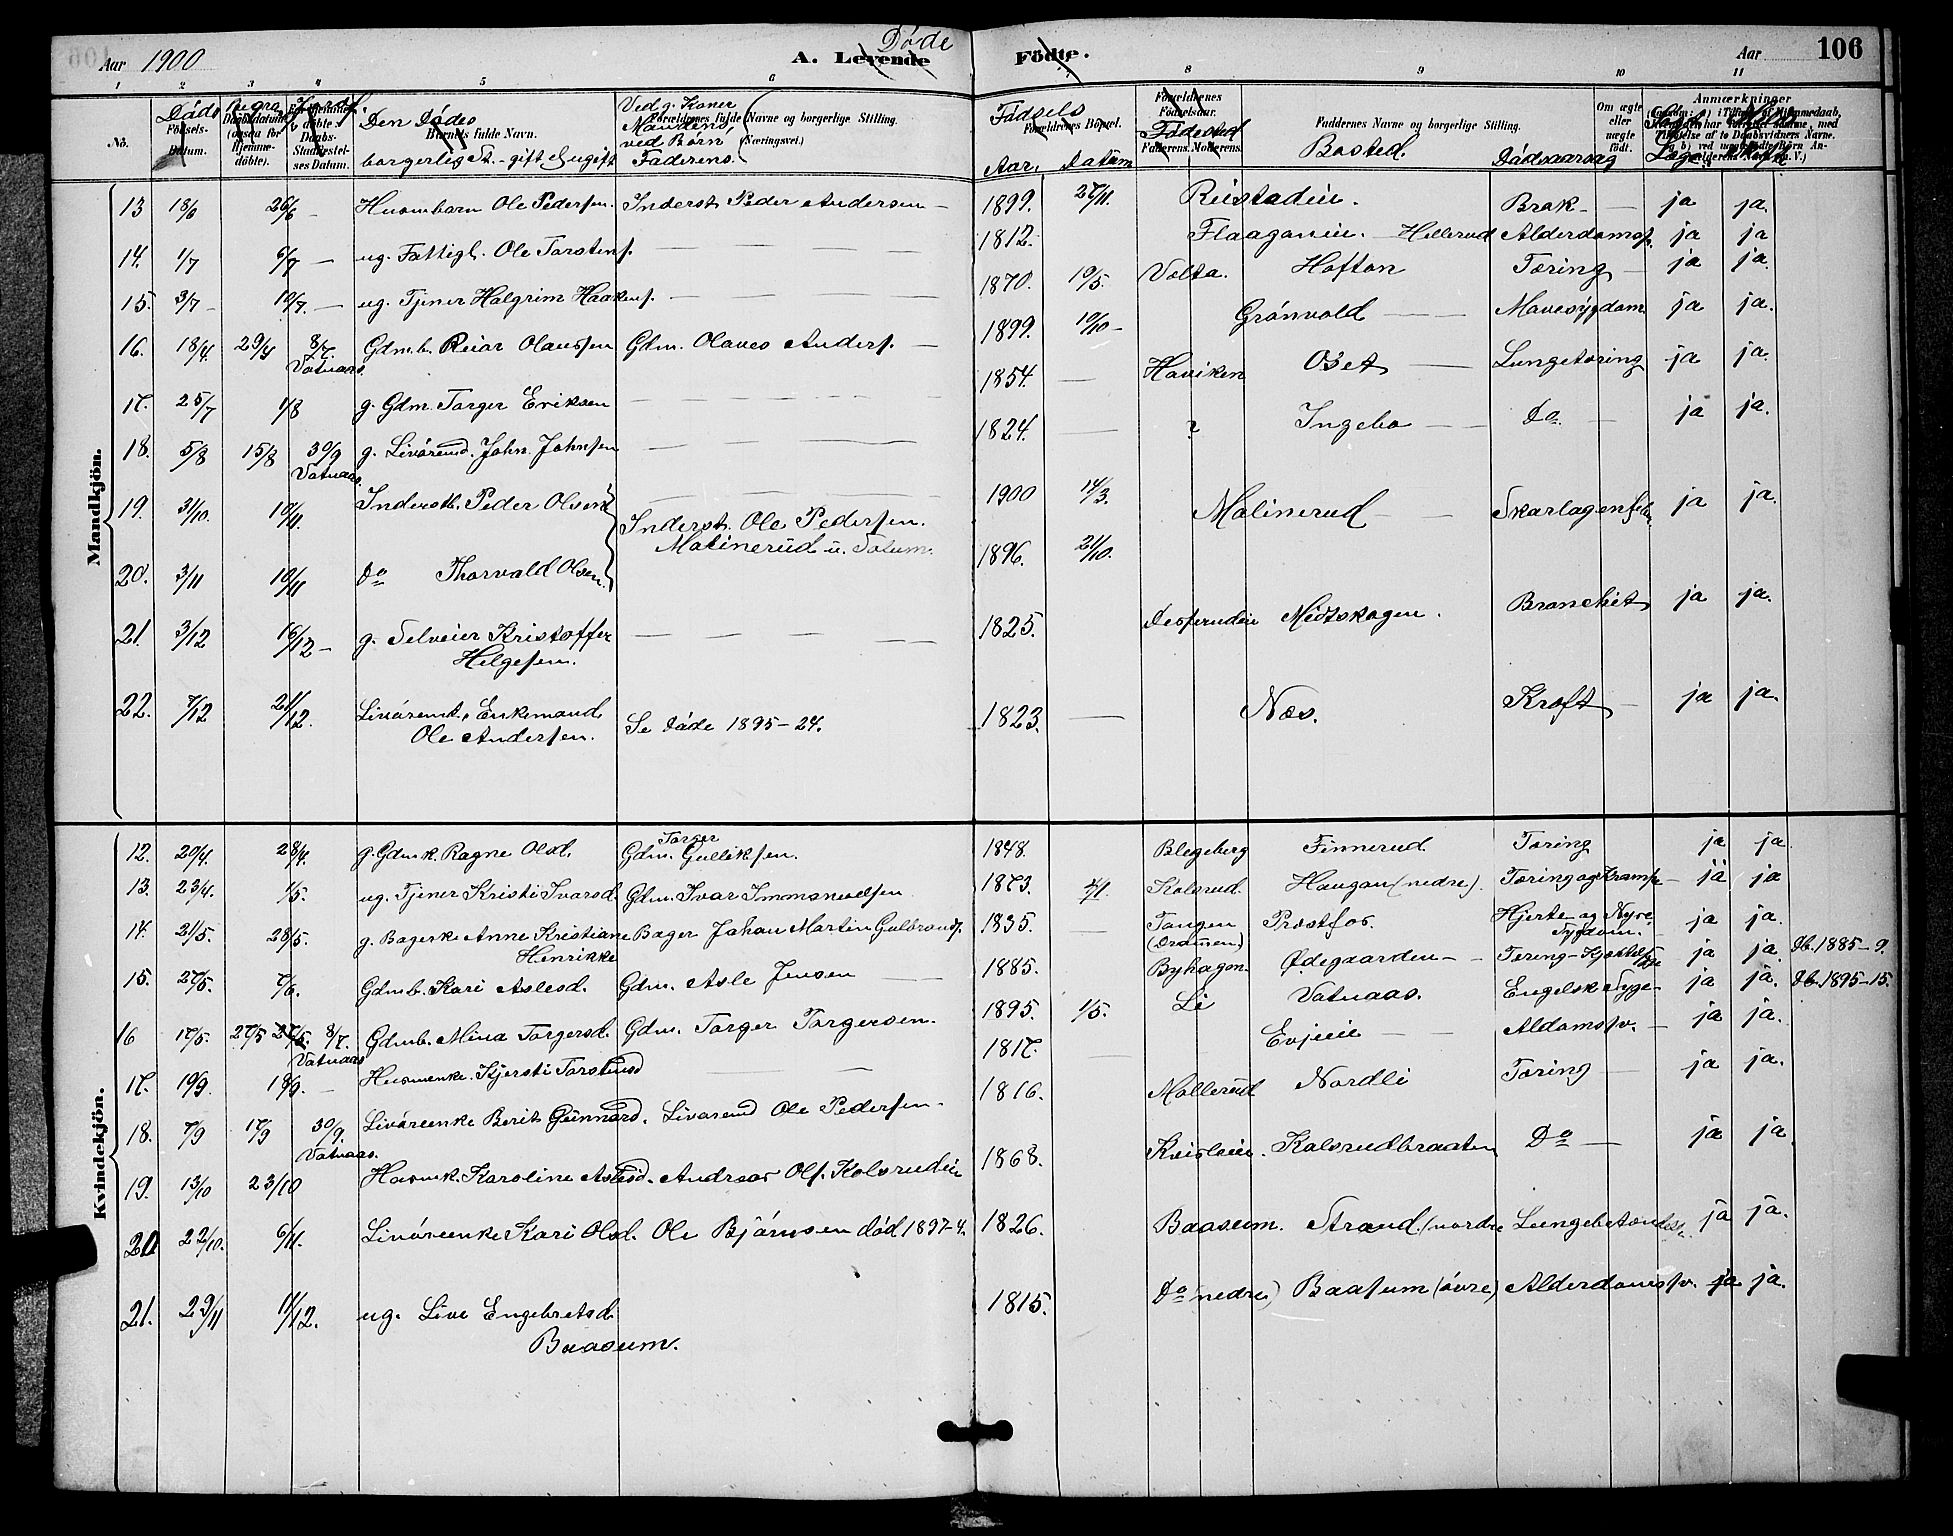 Aar 1900 A. Levende Døde Fødte. Aar 106
1 2 3 4 5 6 8 9 10 11
No. Døds Fødsels-Datum. Begra Daabsdatum (ogsaa for Hjemmedøbte). Den Dødes Barnets fulde Navn. borgerlig St.- gift el. ugift Ved g. Koner Mandens, ved Børn Faderens. Forældrenes fulde Navne og borgerlige Stilling. (Næringsvei.)
Fødsels Aar, Datum Forældrenes Bopæl. Forældrenes Fødselsaar. Fødested Faderens. Moderens. Faddernes Navne og borgerlige Stilling. Bosted. Dødsaarsag Om ægte eller uægte født. Anmærkninger
Mandkjøn.
13 18/6 26/6 - Husmbarn Ole Pedersen Inderst Peder Andersen - 1899. 27/11. Reistadeie. Brok - ja ja.
14. 1/7 6/7 - ug. Fattigl. Ole Torstens. 1812. Flaaganeie. - Hellerud Alderdomssv. ja ja
15. 3/7 - 10/7. - ug. Tjener Halgrim Haakens. 1870. 10/5. Volta. Hofton Tæring - ja ja.
16. 18/4. 29/4 8/7. Vatnaas. Gdm.b. Reiar Olaussen Gdm. Olaves Anders. - 1899. 10/10 - Grønvold Mavesygdom ja ja.
17. 25/7 1/8 g. Gdm. Torger Eriksen 1854. Haviken Oset Lungetæring ja ja.
18. 5/8 15/8 30/9 Vatnaas. g. Livøremd. John Johnsen 1824. ? Ingebo Do. ja ja.
19. 31/10. 10/11. Inderstb. Peder Olsen Inderst. Ole Pedersen. Molinerud u. Totum. 1900 14/3. Molinerud Skarlagensfeber ja ja.
20. 3/11 10/11 Do Thorvald Olsen. 1896. 21/10.
21. 3/12 16/12 - g. Selveier Kristoffer Helgesen. 1825. Desperudeie Midtskogen. Bronchit ja ja.
22. 7/12 21/12. Livøremd. Enkemand Ole Andersen. Se Døde 1895 - 24. 1823. Næs. Kræft - ja ja.
Kvindekjøn.
12. 20/4. 28/4. g. Gdmk. Ragne Olsd. Gdm. Torger Gulliksen. 1848. Blegeberg Finnerud. Tæring ja ja.
13. 23/4. 1/5. ug. Tjener Kristi Ivarsd. Gdm. Ivar Immanuelsen 1873. 4/1. Kolsrud. Haugan (nedre). Tæring og Krampe - ja ja
14. 21/5. 28/5. g. Bagerke Anne Kristiane Henrikke Bager Johan Martin Gulbrands. 1835. Tangen (Drammen) Prostfos. Hjerte- og Nyre Sygdom. ja ja.
15. 27/5. 7/6. Gdmb. Kari Aslesd. Gdm. Asle Jensen 1885. Byhagon. Ødegaarden - ja ja. Db. 1885 - 9.
16 17/5. 27/5 27/5. 8/7. Vatnaas Gdmb. Mina Torgersd. Gdm. Torger Torgersen. 1895. 1/5. Li Vatnaas. Engelsk Syge - ja ja. Db. 1895 - 15.
17. 10/9 18/9. - Husmenke. Kjersti Torstensd 1817. Evjeeie Aldomssv. - ja ja.
18. 7/9 17/9 30/9. Vatnaas. Livøreenke Berit Gunnarsd. Livøremd Ole Pedersen - 1816. Mollerud Nordli Tæring ja ja.
19. 13/10 23/10 Husmk. Karoline Aslesd. Andreas Ols. Kolsrudeie 1868. Kvisleeie. Kolsrudbraaten Do ja ja.
20 22/10. 6/11. Livøreenke Kari Olsd. Ole Bjørnsen død 1897 - 4. 1826. Baasum. Strand (nordre Lungebetændelse. ja ja.
21. 29/11 11/12. ug. Live Engebretsd. Baasum. 1815. Do nedre) Baasum (øvre) Alderdomssv. ja ja.